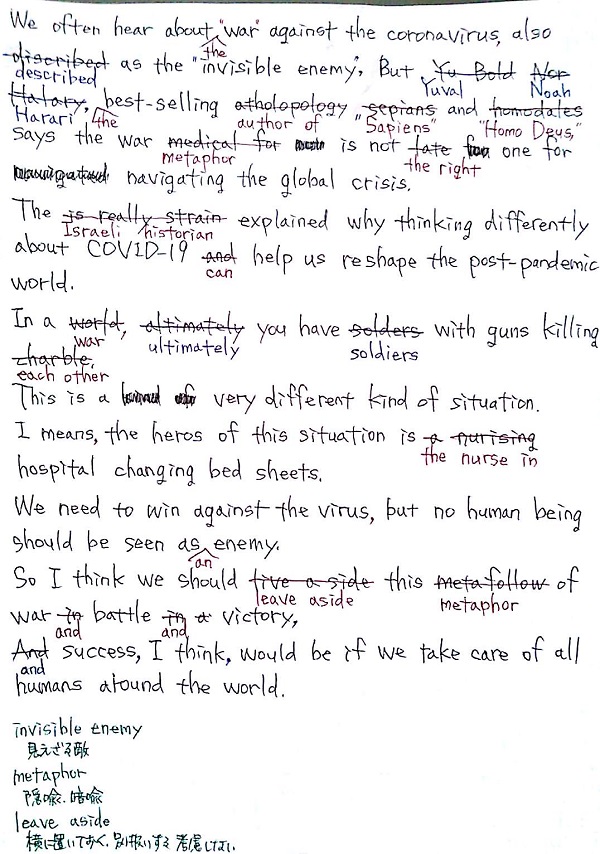 We often hear about "war" against the coronavirus, also
the
discribed as the "invisible enemy", But Yu Bold Nor
described Yuval Noah
Halary, best-selling atholopology "sepians and homodales
Harari the author of Sapiens" "Homo Deus,"
says the war medical for is not late one for
metaphor the right
navigating the global crisis.
The is really strain explained why thinking differently
Israeli historian
about COVID-19 and help us reshape the post-pandemic
can
world.
In a world, altimately you have solders with guns killing
war ultimately soldiers
charble.
each other
This is a very different kind of situation.
I means, the heros of this situation is a nurising
the nurse in
hospital changing bed sheets.
We need to win against the virus, but no human being
should be seen as enemy.
an
So I think we should live a side this metafollow of
leave aside metaphor
war in battle in a victory,
and and
And success, I think, would be if we take care of all
and
humans around the world.
invisible enemy
見えざる敵
metaphor
隠喩.暗喩
leave aside
横に置いておく.別扱いする 考慮しない